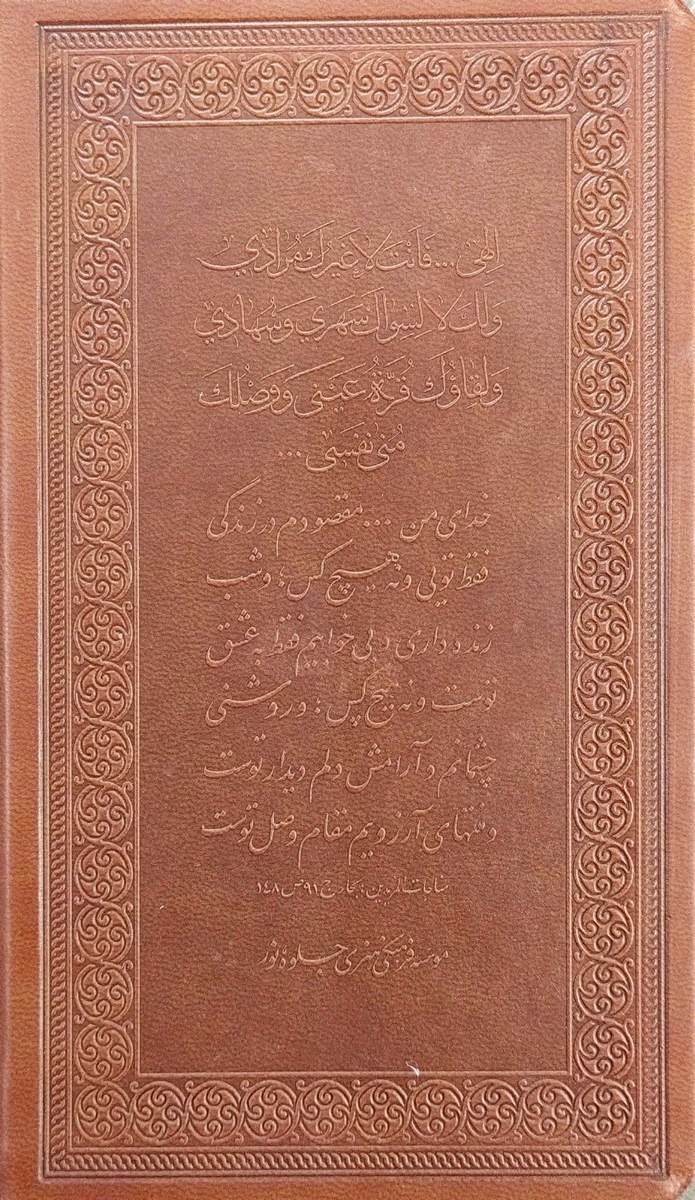 إلهی ... فَأَنْتَ لا غَيْرُكَ مُرادي
وَلَكَ لا لِسِواكَ سَهَري وَسُهادي
وَلِقاؤُكَ قُرَّةُ عَيْني وَوَصْلُكَ
مُنى نَفْسي ...
خدای من ... مقصودم در زندگی
فقط تویی و نه هیچ کس؛ و شب
زنده داری و بی خوابیم فقط به عشق
توست و نه هیچ کس؛ و روشنی
چشمانم و آرامش دلم دیدار توست
و منتهای آرزویم مقام وصل توست
مناجات المریدین؛ بحار ج ۹۱ ص ۱۴۸
موسسه فرهنگی هنری جلوه نور